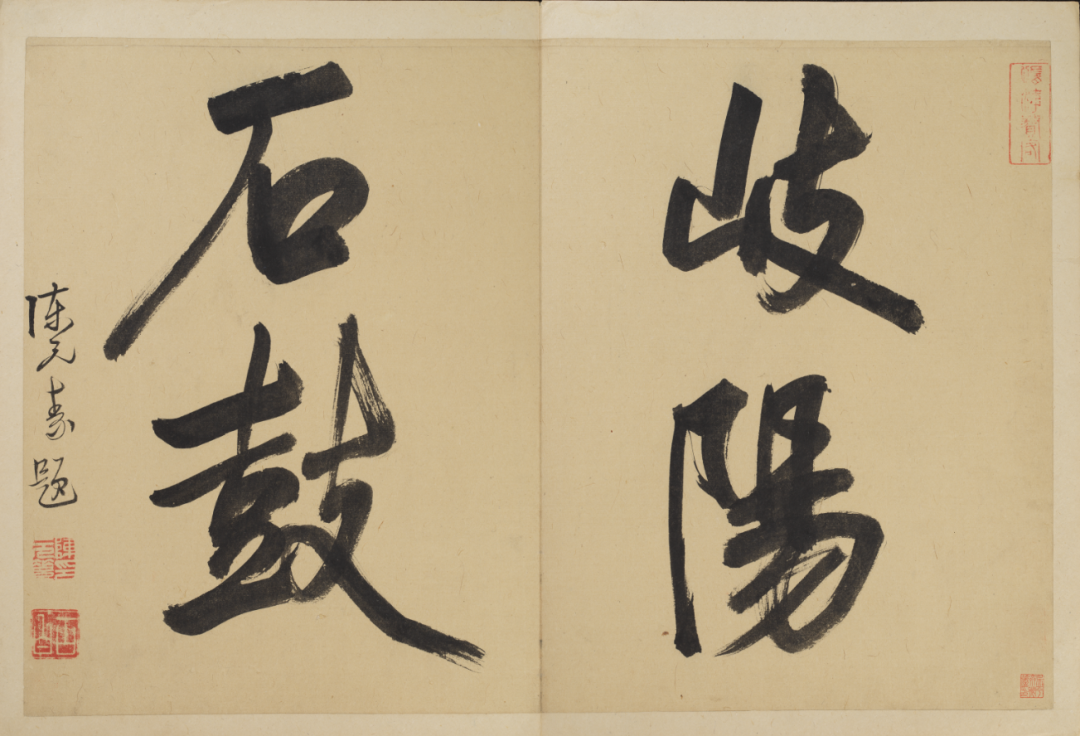 岐陽
石鼓
陳元素題